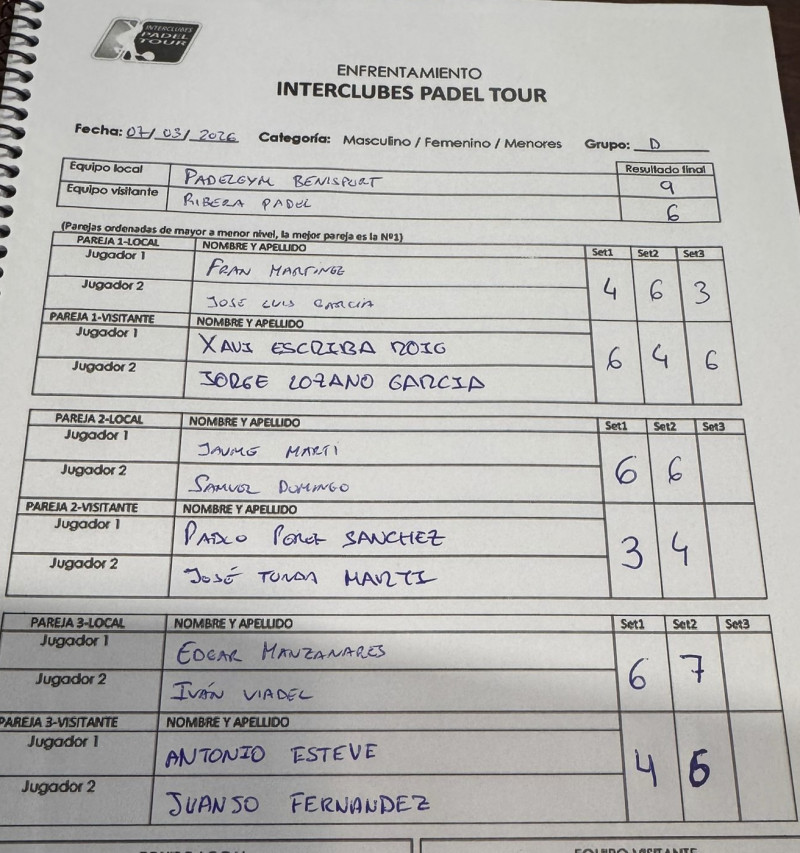 INTERCLUBES
PADEL
TOUR
ENFRENTAMIENTO
INTERCLUBES PADEL TOUR
Fecha: 07/03/2026 Categoría: Masculino / Femenino / Menores Grupo: D
Equipo local PADELGYM BENISPORT Resultado final 9
Equipo visitante RIBERA PADEL 6
(Parejas ordenadas de mayor a menor nivel, la mejor pareja es la Nº1)
PAREJA 1-LOCAL NOMBRE Y APELLIDO Set1 Set2 Set3
Jugador 1 FRAN MARTINEZ 4 6 3
Jugador 2 JOSE LUIS GARCIA
PAREJA 1-VISITANTE NOMBRE Y APELLIDO
Jugador 1 XAVI ESCRIBA ROIG 6 4 6
Jugador 2 JORGE LOZANO GARCIA
PAREJA 2-LOCAL NOMBRE Y APELLIDO Set1 Set2 Set3
Jugador 1 JAUME MARTI 6 6
Jugador 2 SAMUEL DOMINGO
PAREJA 2-VISITANTE NOMBRE Y APELLIDO
Jugador 1 PABLO PEREZ SANCHEZ 3 4
Jugador 2 JOSÉ MARTI
PAREJA 3-LOCAL NOMBRE Y APELLIDO Set1 Set2 Set3
Jugador 1 EDGAR MANZANARES 6 7
Jugador 2 IVÁN VIADEL
PAREJA 3-VISITANTE NOMBRE Y APELLIDO
Jugador 1 ANTONIO ESTEVE 4 5
Jugador 2 JUANJO FERNANDEZ